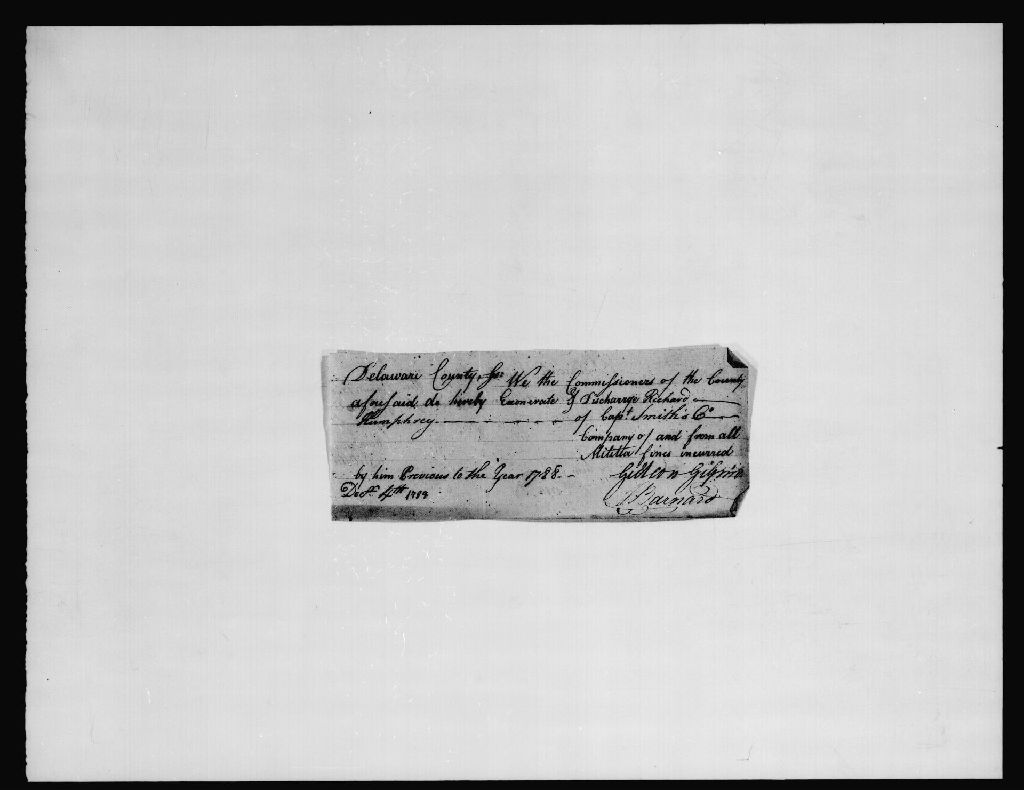 Delaware County Ss. We the Commissioners of the County
aforesaid do hereby Exonerate & Discharge Richard
Humphrey - - - - - of Capt. Smith's Co
Company of and from all
Militia fines incurred
by him Previous to the Year 1788. -
Decr. 4th 1788
Barnard